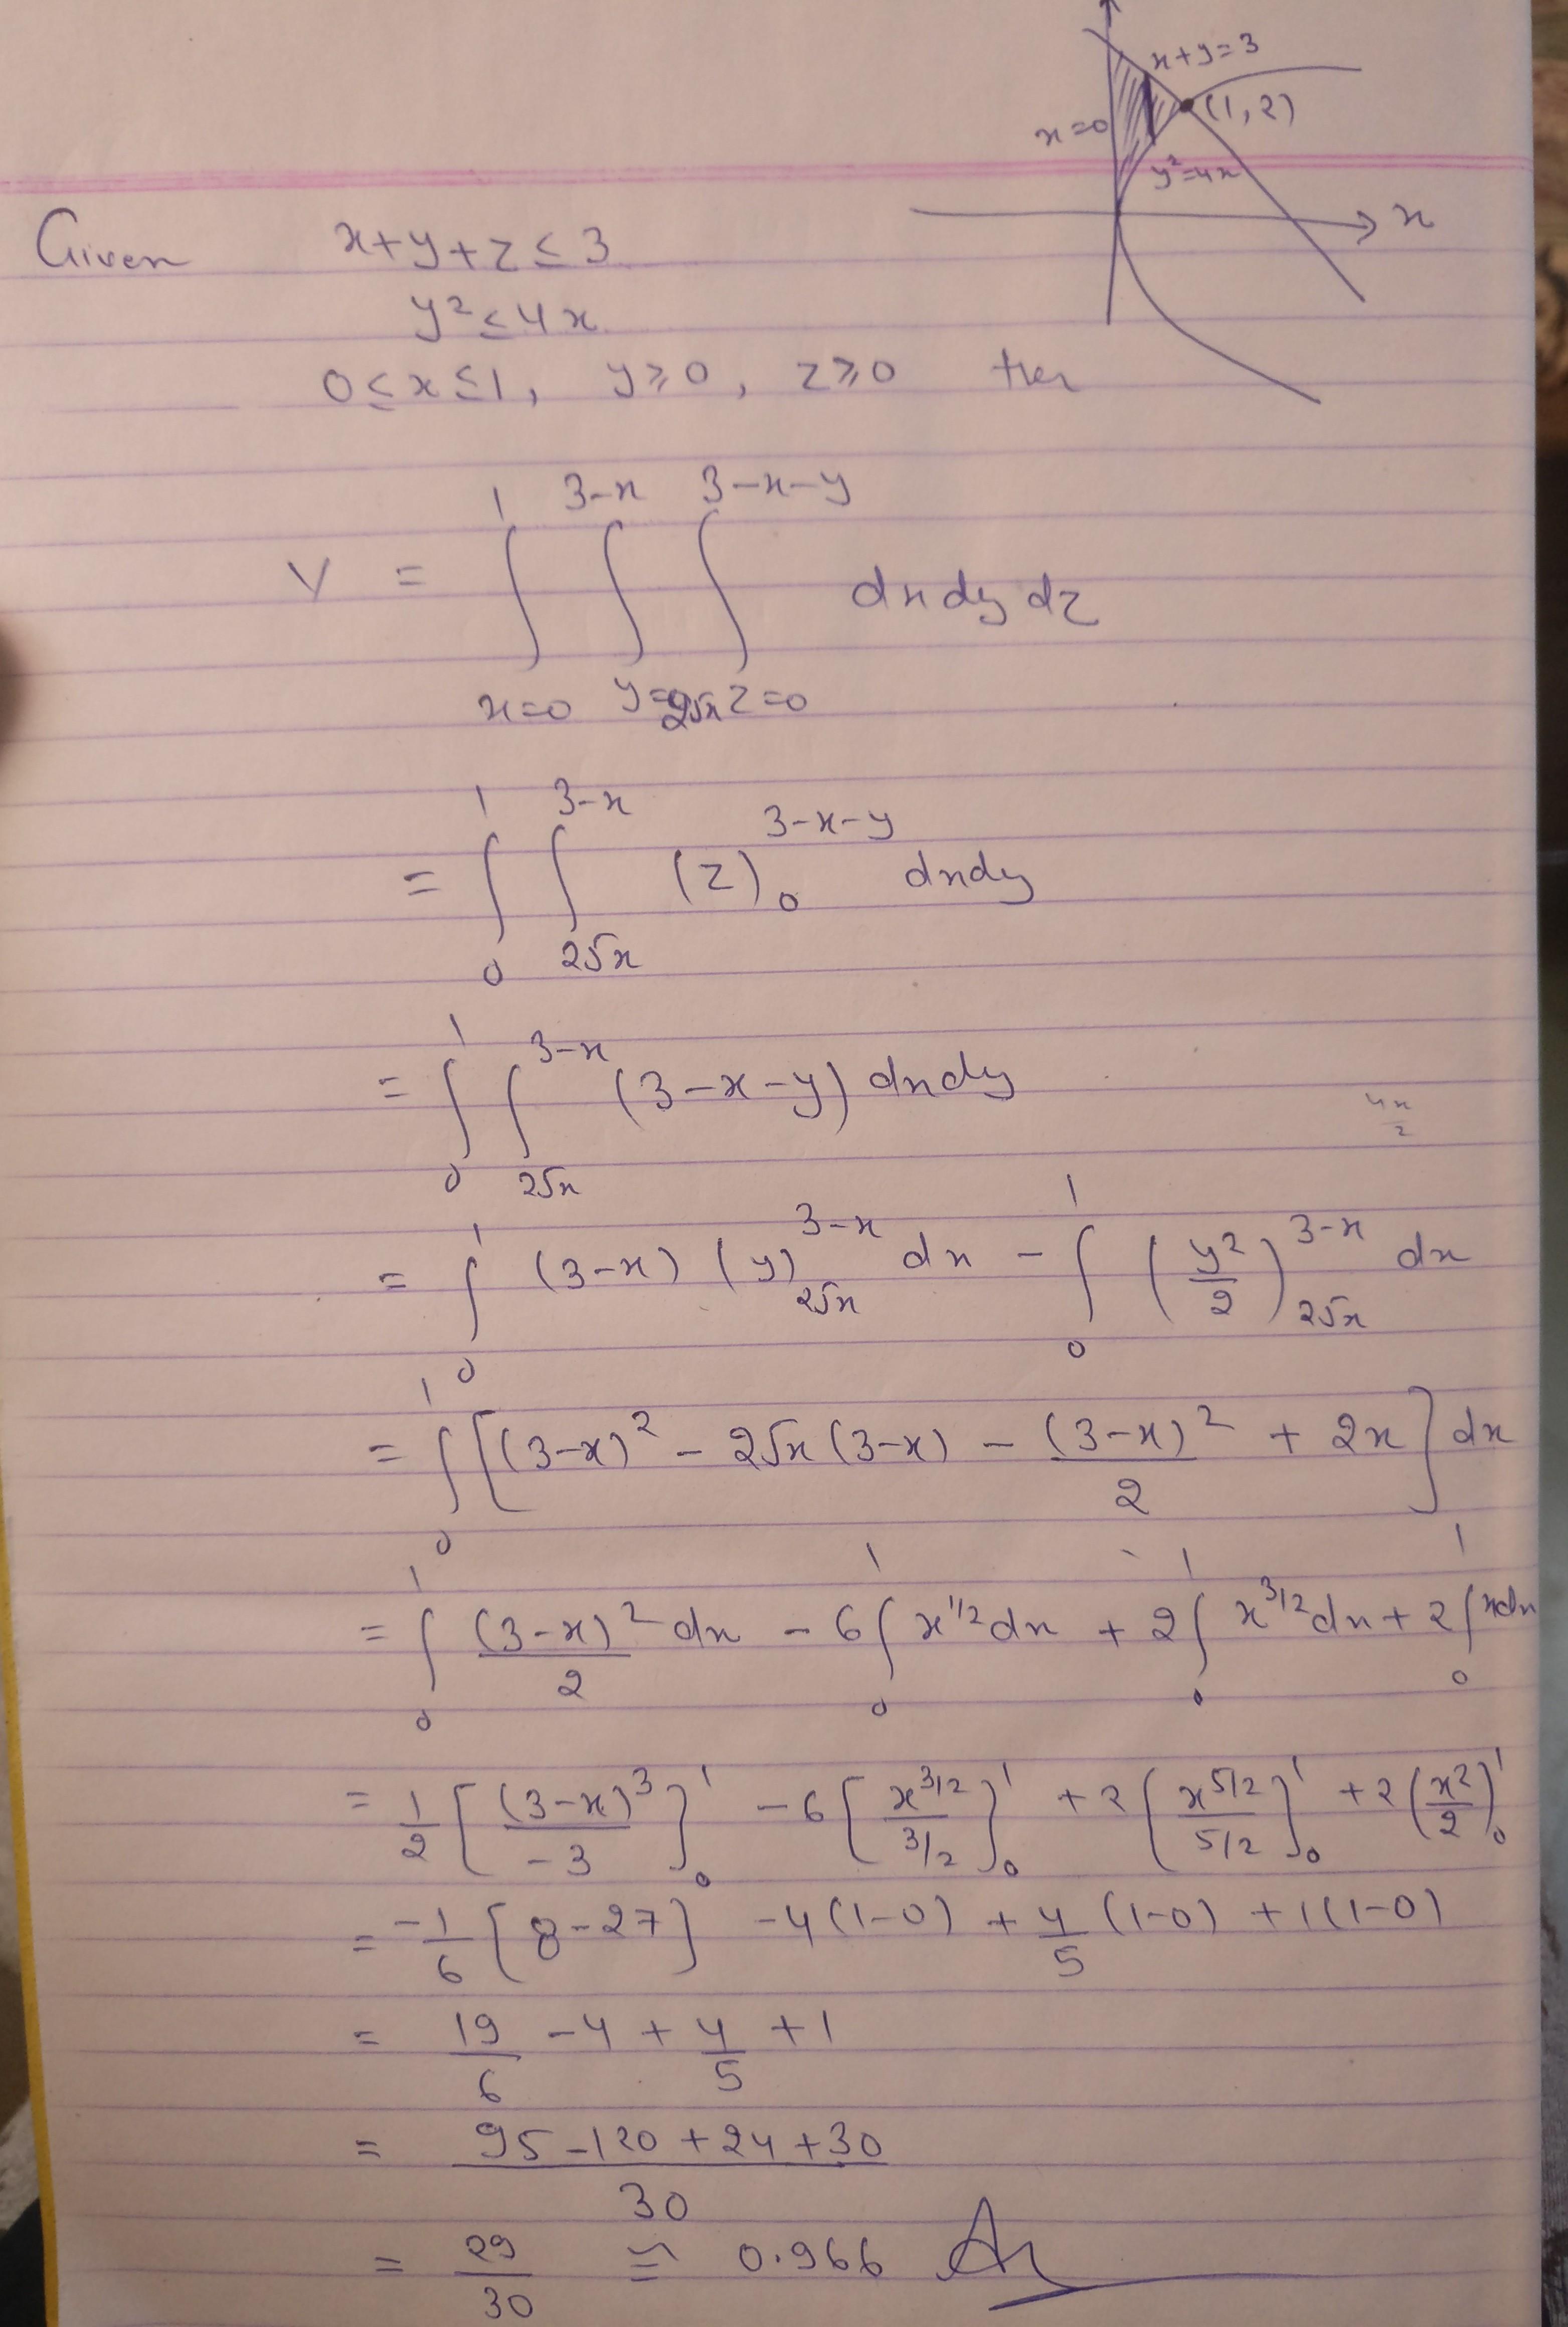 x+y=3
x=0
(1,2)
y²=4x
x
Given x+y+z≤3
y²≤4x
0≤x≤1, y≥0, z≥0 then
V = ∫_{x=0}^{1} ∫_{y=2√x}^{3-x} ∫_{z=0}^{3-x-y} dxdydz
= ∫_{0}^{1} ∫_{2√x}^{3-x} (z)_{0}^{3-x-y} dxdy
= ∫_{0}^{1} ∫_{2√x}^{3-x} (3-x-y) dxdy
4x/2
= ∫_{0}^{1} (3-x) (y)_{2√x}^{3-x} dx - ∫_{0}^{1} (y²/2)_{2√x}^{3-x} dx
= ∫_{0}^{1} [(3-x)² - 2√x (3-x) - (3-x)²/2 + 2x] dx
= ∫_{0}^{1} (3-x)²/2 dx - 6∫_{0}^{1} x^{1/2} dx + 2∫_{0}^{1} x^{3/2} dx + 2∫_{0}^{1} xdx
= 1/2 [(3-x)³/-3]_{0}^{1} - 6[x^{3/2}/3/2]_{0}^{1} + 2[x^{5/2}/5/2]_{0}^{1} + 2(x²/2)_{0}^{1}
= -1/6 [8-27] -4(1-0) + 4/5 (1-0) + 1(1-0)
= 19/6 -4 + 4/5 +1
= 95-120+24+30/30
= 29/30 ≅ 0.966 Ans